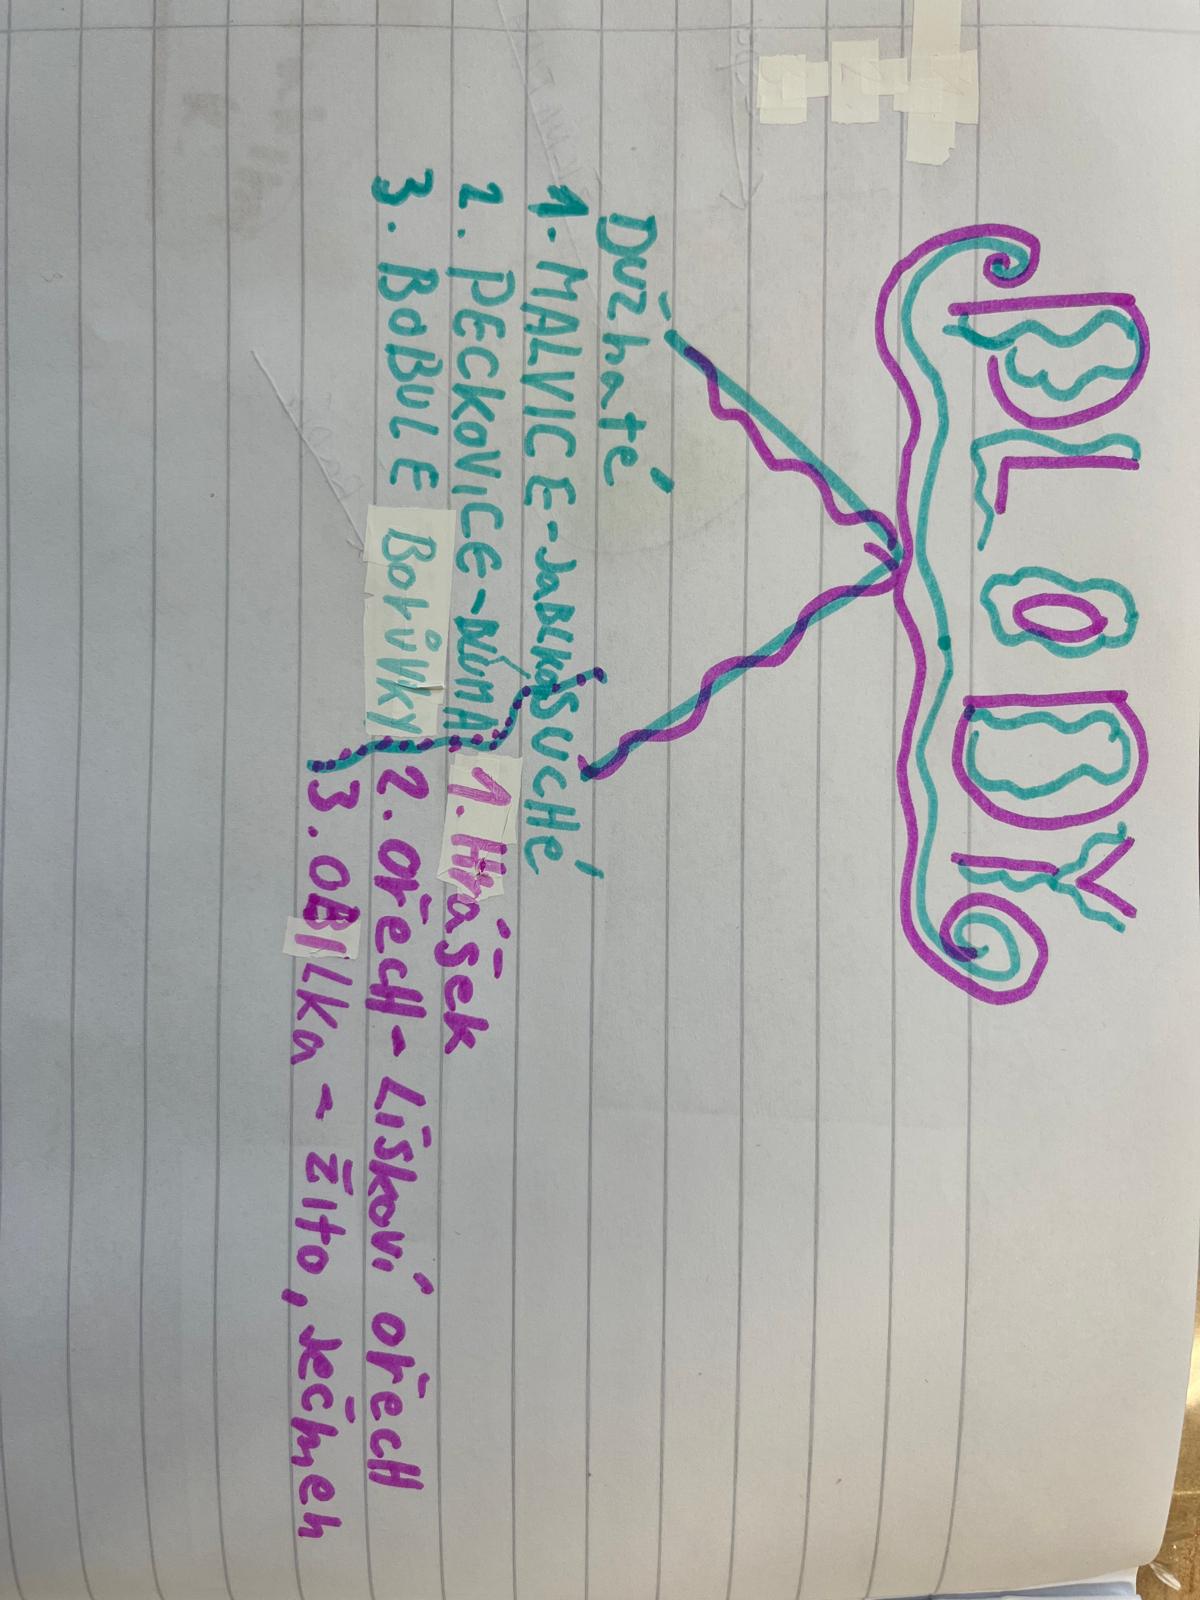 PLODY
Dužnaté
1. MALVICE - JABLKO
2. PECKOVICE -
3. BOBULE Borůvky
SUCHÉ
1. Hrášek
2. OŘECH - Liskoví ořech
3. OBILKA - žito, Ječmen